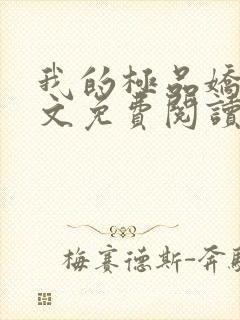 我的極品嬌
文免費閱讀
梅賽德斯-奔馳